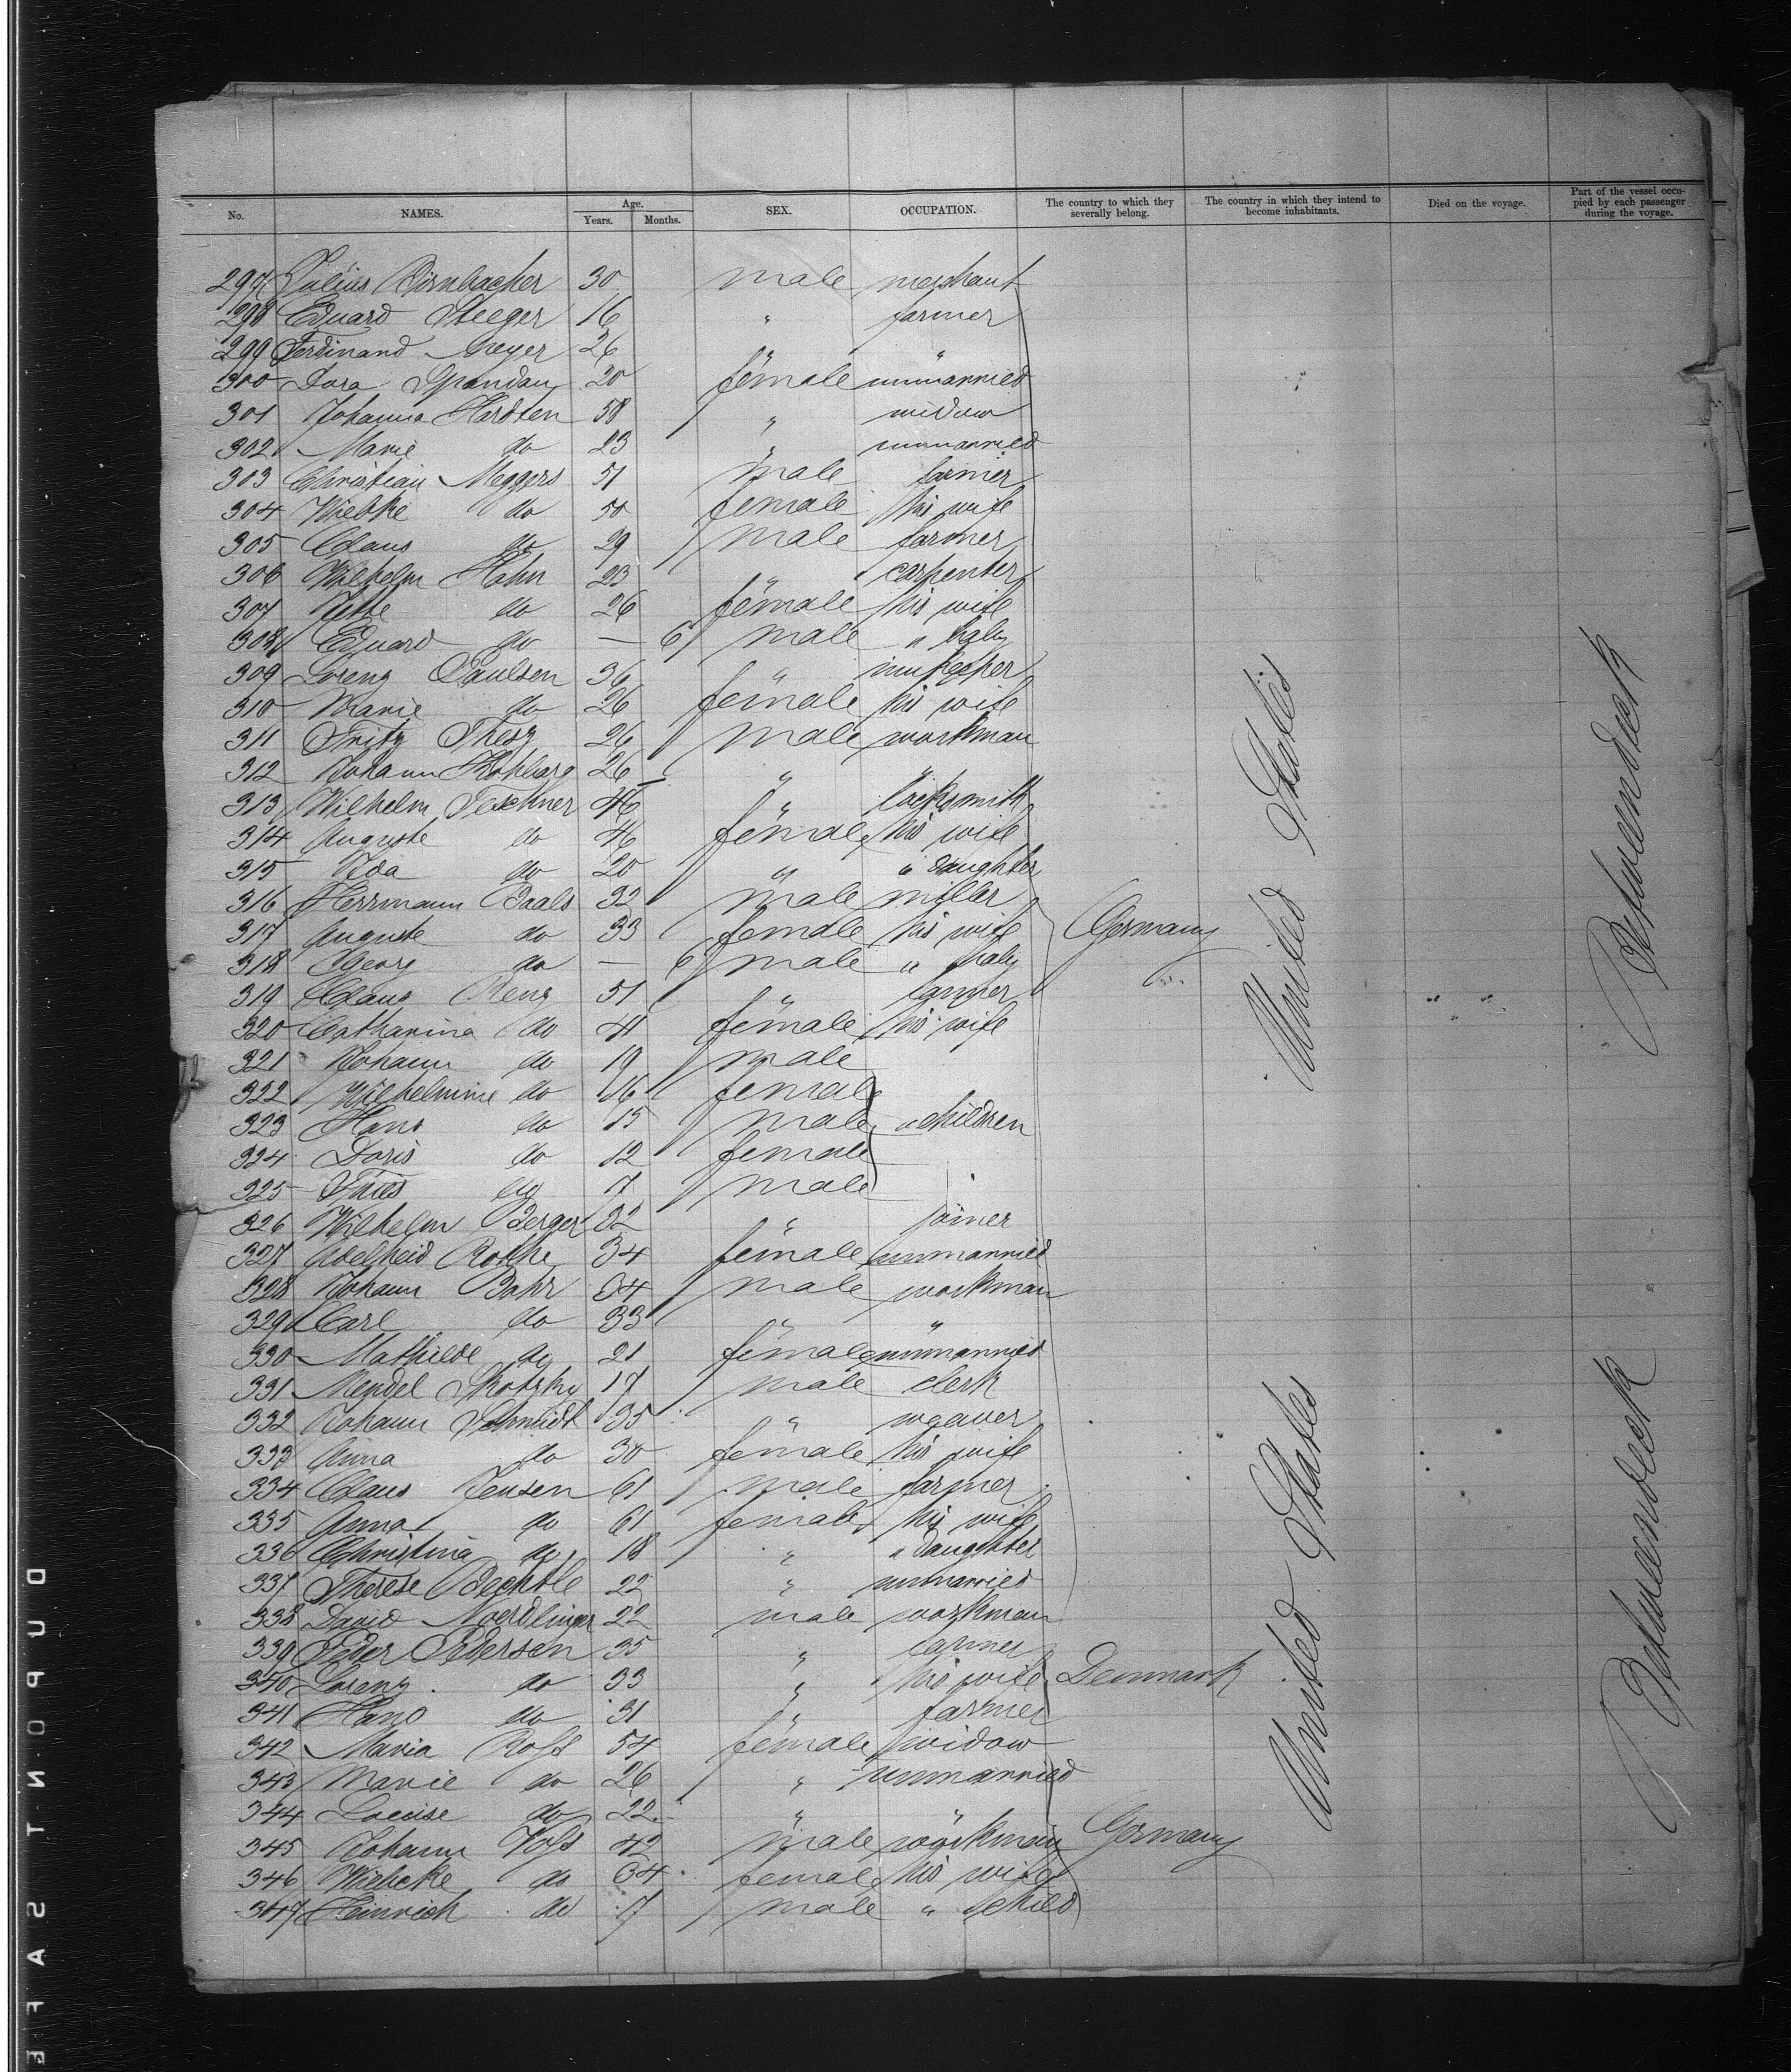 No. NAMES. Age. Years. Months. SEX. OCCUPATION. The country to which they severally belong. The country in which they intend to become inhabitants. Died on the voyage. Part of the vessel occupied by each passenger during the voyage.
297 Julius Birnbacher 30 male merchant
298 Eduard Steeger 16 " farmer
299 Ferdinand Meyer 26 " "
300 Dora Spandau 20 female unmarried
301 Johanna Hardten 58 " widow
302 Marie do 23 " unmarried
303 Christian Meggers 51 male farmer
304 Wiebke do 50 female his wife
305 Claus do 29 male farmer
306 Wilhelm Hahn 23 " carpenter
307 do 26 female his wife
308 Eduard do — 6 male " baby
309 Lorenz Paulsen 36 " innkeeper
310 Marie do 26 female his wife
311 Fritz 26 male workman
312 Johann Kohlberg 26 " "
313 Wilhelm Teschner 46 " locksmith
314 Auguste do 46 female his wife
315 Ida do 20 " " daughter
316 Herrmann Baals 32 male miller
317 Auguste do 33 female his wife Germany
318 Georg do — 6 male " baby
319 Claus Renz 51 " farmer
320 Catharina do 41 female his wife
321 Johann do 19 male
322 Wilhelmine do 16 female
323 Hans do 15 male " children
324 Doris do 12 female
325 do 7 male
326 Wilhelm Berger 32 " joiner
327 Adelheid Rothe 34 female unmarried
328 Johann Bahr 64 male workman
329 Carl do 33 " "
330 Mathilde do 21 female unmarried
331 Mendel Skotzky 17 male clerk
332 Johann Schmidt 35 " weaver
333 Anna do 30 female his wife
334 Claus Jensen 61 male farmer
335 Anna do 61 female his wife
336 Christina do 18 " " daughter
337 Therese Bechtle 22 " unmarried
338 David Noerdlinger 22 male workman
339 Peder Pedersen 35 " farmer
340 Lorenz do 33 " his wife Denmark
341 Hans do 31 " farmer
342 Maria 54 female widow
343 Marie do 26 " unmarried
344 Louise do 22 " "
345 Johann Voss 42 male workman Germany
346 Wiebcke do 34 female his wife
347 Heinrich do 7 male " child
United States
Betweendeck
United States
Betweendeck
DUPONT SAFE